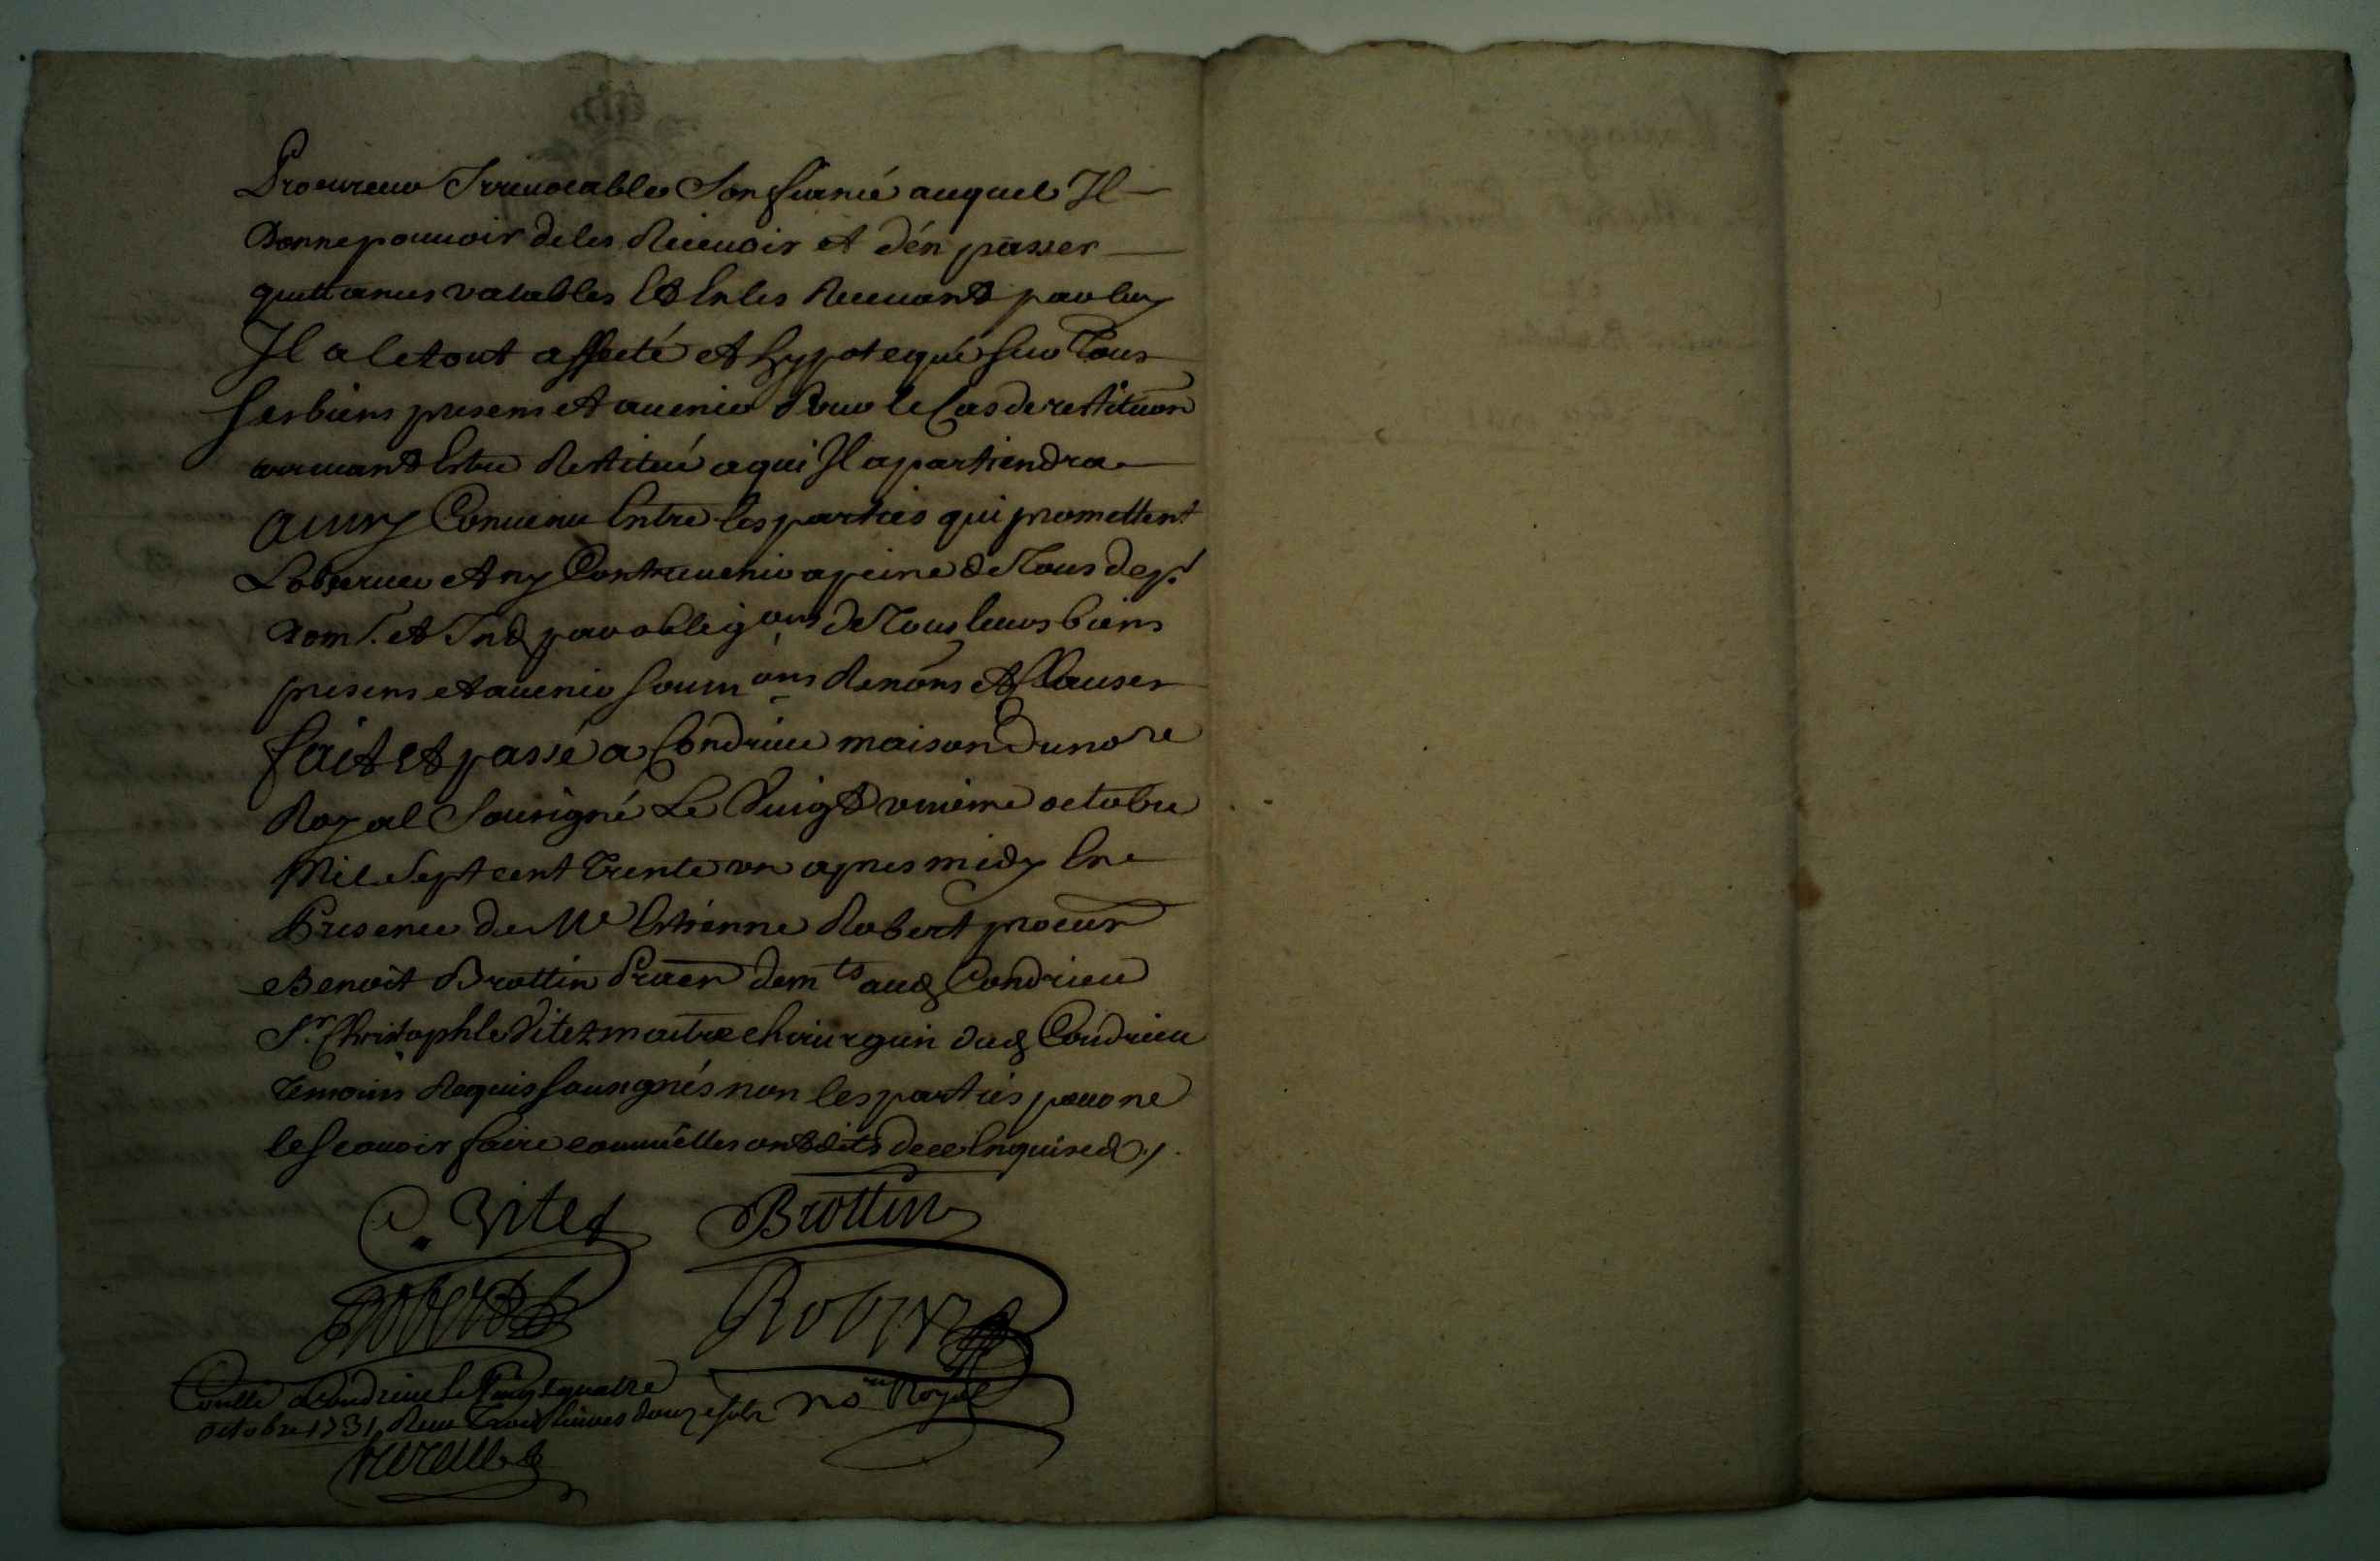 Procureur Irreuocable Son fiancé auquel Il
Donne pouuoir de les Receuoir et d'én passer
quittances valables Et En les Receuant par luy
Il a le tout affecté et hypotequé sur Tous
ses biens presens et auenir Pour le Cas de restituon
arriuant Estre Restitué a qui Il apartiendra
ainsy Conuenu Entre les parties qui promettent
L'obseruer et ny Contreuenir a peine de Tous dep.
dom. et Int par obligons de Tous leurs biens
presens et auenir soumons Renons et Clauses
fait et passé a Condrieu maison du nore
Royal Sousigné Le Vingt unieme octobre
Mil Sept cent Trente un apres midy En
Presence de Me Estienne Robert procur
Benoit Brottin Praen demts aud Condrieu
Sr. Christophle Vitez maitre chirurgien dud Condrieu
Temoins Requis sousignés non les parties pour ne
le scauoir faire comme elles ont dits de ce Enquis
C. Vitez Brottin
Robert Robert
Conllé a Condrieu le Vingt quatre
octobre 1731 Receu Trois liures douze sols nore Royal